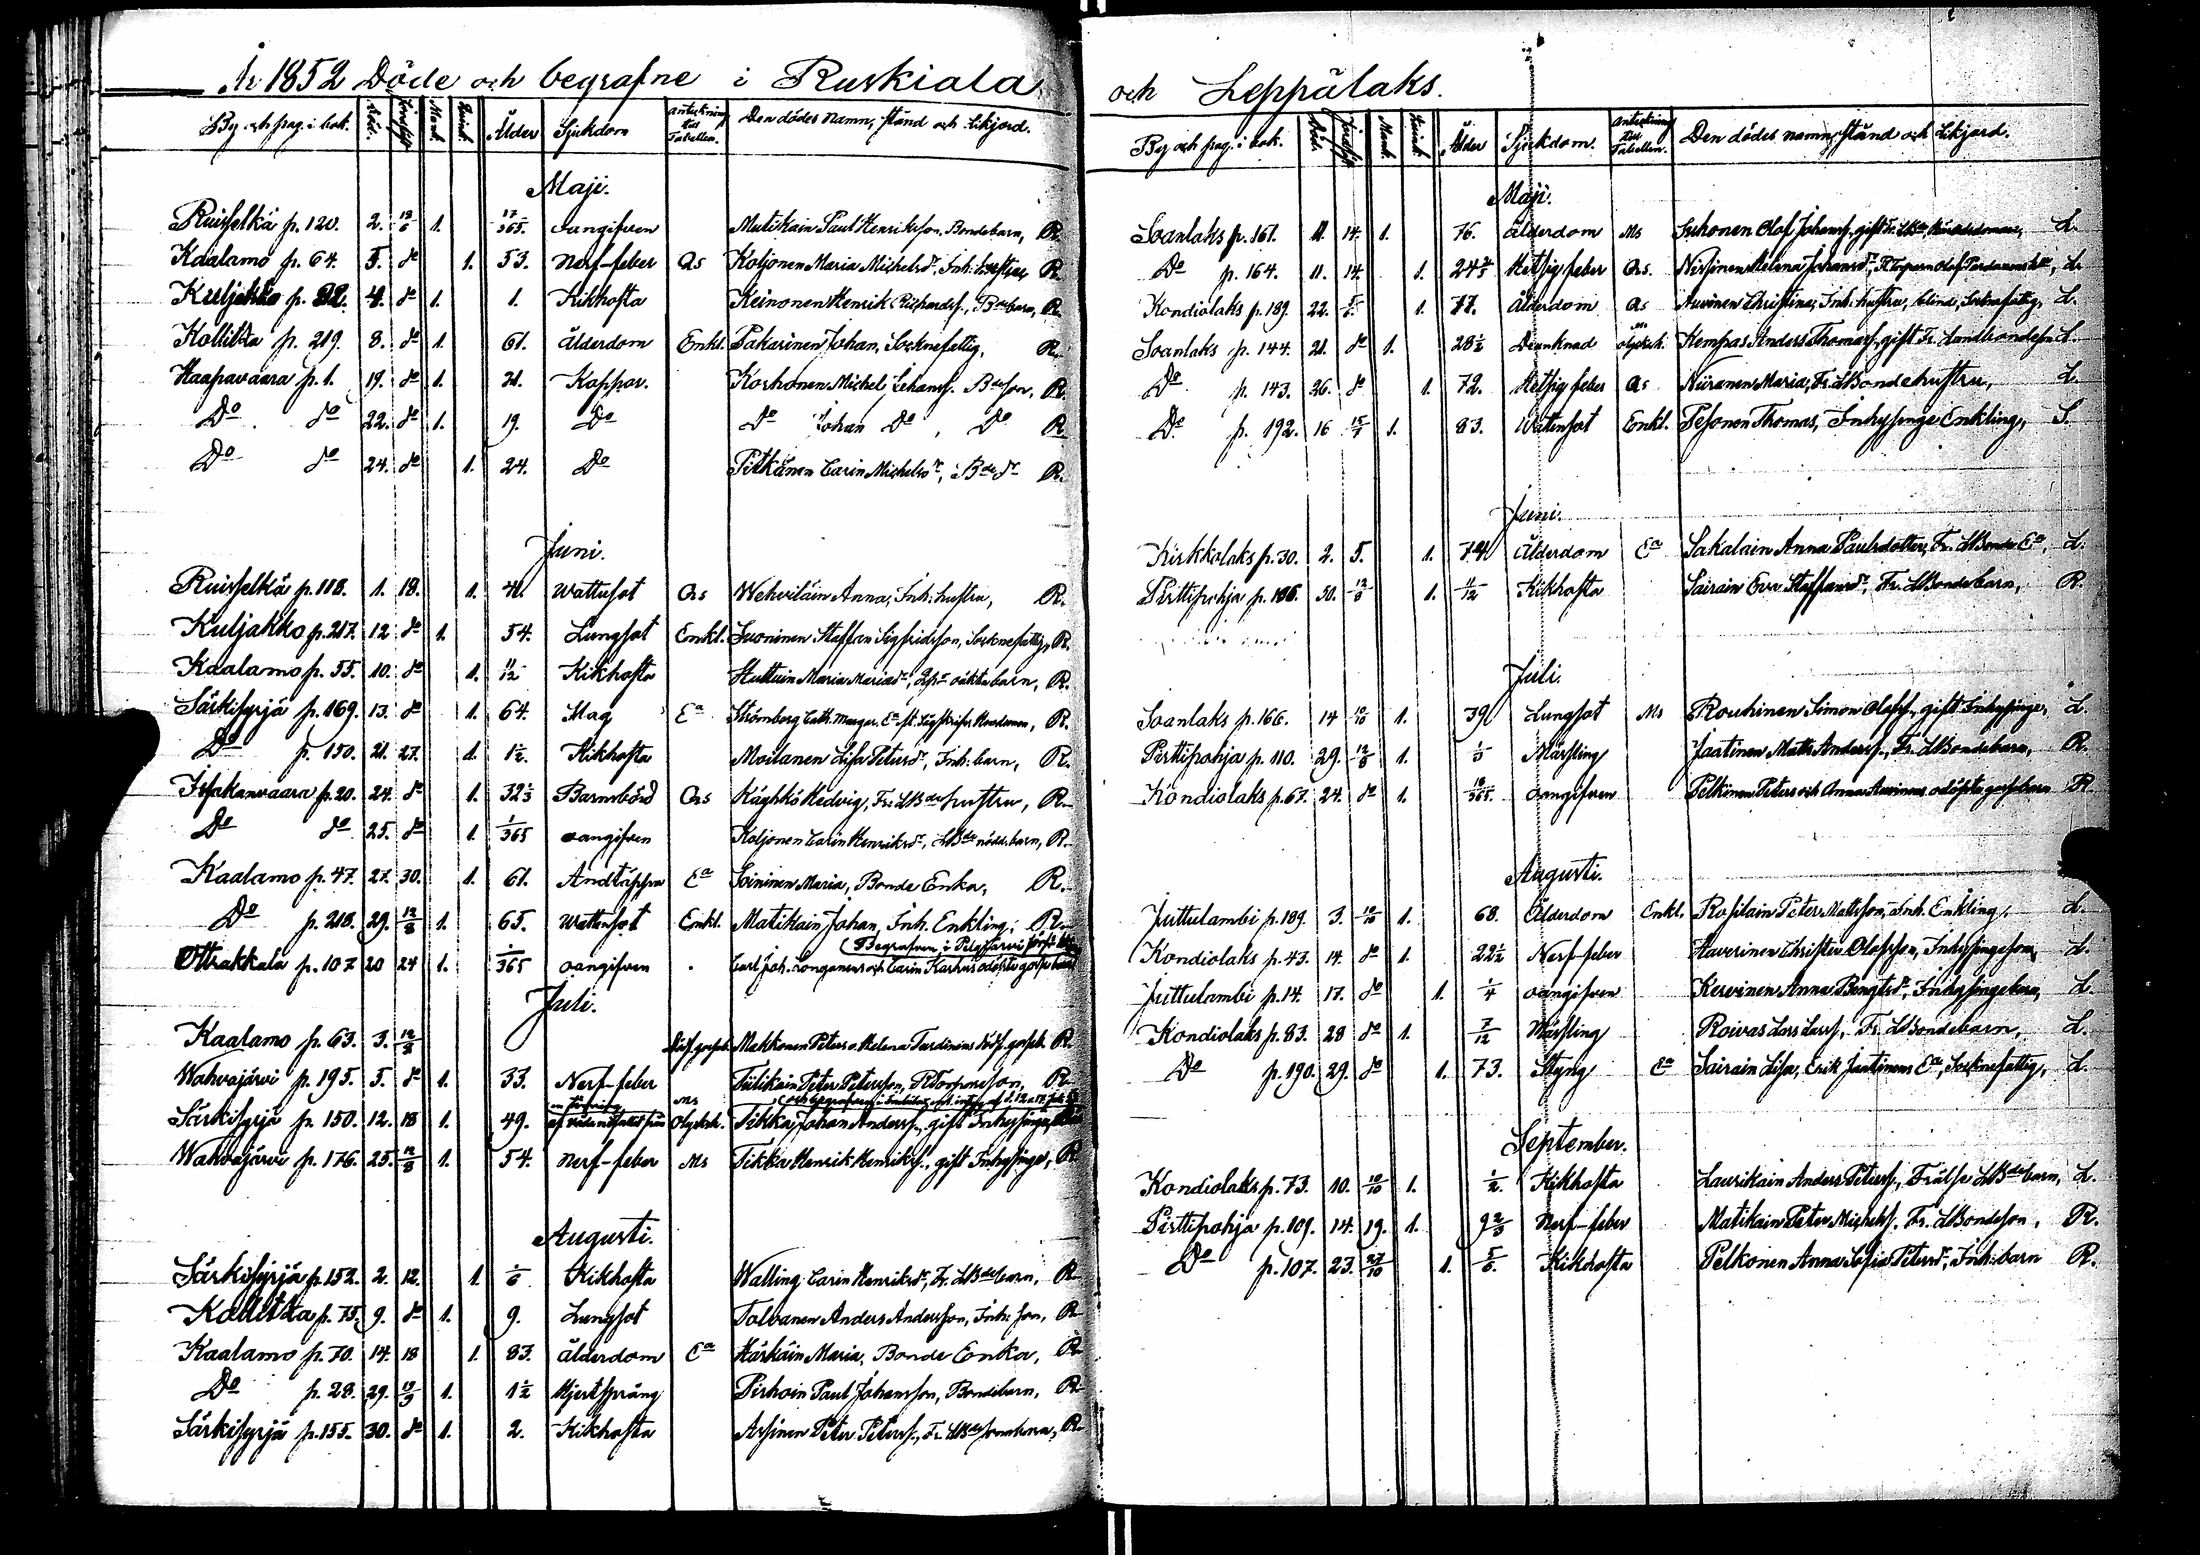 År 1852 Döde och begrafne i Ruskiala
By och pag. i bok. Död. Mank. Qvink. Ålder Sjukdom Anteckning till Tabellen. Den dödes namn, stånd och Likjord.
Maji.
Ruisselkä p. 120. 2. 13/6 1. 17/365. oangifven Matikain Paul Henriksson, Bondebarn, R.
Kaalamo p. 64. 5. do 1. 53. Nerf-feber Qs Koljonen Maria Michelsdr, Inh. hustru, R.
Kuljakko p. 22. 4. do 1. 1. Kikhosta Keinonen Henrik Richardss., Bdebarn, R.
Kollitka p. 219. 8. do 1. 61. Ålderdom Enkl. Pakarinen Johan, Socknefattig, R.
Haapavaara p. 1. 19. do 1. 21. Koppor. Korhonen Michel Johanss. Bdeson, R.
Do do 22. do 1. 19. Do Do Johan Do, Do R.
Do do 24. do 1. 24. Do Pitkänen Carin Michelsdr, Bdedr R.
Juni.
Ruisselkä p. 118. 1. 18. 1. 41. Wattusot Qs Wehviläin Anna, Inh. hustru, R.
Kuljakko p. 217. 12 do 1. 54. Lungsot Enkl. Suoninen Staffan Sigfridsson, Socknefattig, R.
Kaalamo p. 55. 10. do 1. 11/12 Kikhosta Huttuin Maria Mariadr, oäkta barn, R.
Särkisyrjä p. 169. 13. do 1. 64. Mag Ea Strömberg Cath. Margar. R.
Do p. 150. 21. 27. 1. 1½. Kikhosta Moilanen Lisa Petersdr, Inh. barn, R.
Issakanvaara p. 20. 24. do 1. 32⅓ Barnsbörd Qs Käyhkö Hedvig, Fr. LBdehustru, R.
Do do 25. do 1. 1/365 oangifven Koljonen Carin Henriksdr, LBde nödd. barn, R.
Kaalamo p. 47. 27. 30. 1. 61. Andtäppa Ea Soininen Maria, Bonde Enka, R.
Do p. 218. 29. 12/8 1. 65. Wattusot Enkl. Matikain Johan, Inh. Enkling, R.
(Begrafven i Pelgjärvi
Otrakkala p. 107 20 24 1. 1/365 oangifven Carl Joh. Longanens och Carin Karhus odöpta gossebarn
Juli.
Kaalamo p. 63. 3. 12/8 Makkonen Peters o. Helena Turdinens dödf. gosseb. R.
Wahvajärvi p. 195. 5. do 1. 33. Nerf-feber Tiilikain Peter Petersson, R Torpareson, R.
Särkisyrjä p. 150. 12. 18 1. 49. Ms Olycksh. Tikka Johan Anderss., gift Inhysinge,
Wahvajärvi p. 176. 25. 12/8 1. 54. Nerf-feber Ms Tikka Henrik Henrikss., gift Inhysinge, R.
Augusti.
Särkisyrjä p. 152. 2. 12. 1. 1/6 Kikhosta Walling Carin Henriksdr, Fr. LBdebarn, R.
Kalitka p. 75. 9. do 1. 9. Lungsot Tolvanen Anders Andersson, Inh. son, R.
Kaalamo p. 70. 14. 18 1. 83. Ålderdom Ea Härkäin Maria, Bonde Enka, R.
Do p. 28. 29. 19/9 1. 1½ Hjertsprång Pirhoin Paul Johansson, Bondebarn, R.
Särkisyrjä p. 155. 30. do 1. 2. Kikhosta Assinen Peter Peterss., Fr. LBdesonabarn, R.
och Leppälaks.
By och pag. i bok. Död. Mank. Qvink. Ålder Sjukdom. Anteckning till Tabellen. Den dödes namn, stånd och Likjord.
Maji.
Soanlaks p. 161. 11. 14. 1. 76. Ålderdom Ms Suhonen Olof Johanss., gift Fr. L.
Do p. 164. 11. 14. 1. 24 Hetsig feber Qs Nissinen Helena Johansdr, L.
Kondiolaks p. 189. 22. 1. 77. Ålderdom Qs Auvinen Christina, Inh. hustru, blind, Socknefattig, L.
Soanlaks p. 144. 21. do 1. 28½ Drunknad Ms olycksh. Kempas Anders Thomass., gift Fr. Landbondeson L.
Do p. 143. 26. do 1. 72. Hetsig feber Qs Niiranen Maria, Fr. LBondehustru, L.
Do p. 192. 16 1. 83. Wattensot Enkl. Pesonen Thomas, Inhysinge Enkling, S.
Juni.
Kirkkolaks p. 30. 2. 5. 1. 74 Ålderdom Ea Sakalain Anna Paulsdotter, Fr. LBonde Ea, L.
Pirttipohja p. 106. 30. 1. 11/12 Kikhosta Sairain Eva Staffansdr, Fr. LBondebarn, R.
Juli.
Soanlaks p. 166. 14 10/10 1. 39 Lungsot Ms Rouhinen Simon Olofss., gift Inhysinge, L.
Pirttipohja p. 110. 29. 12/8 1. 1/3 Mässling Jaatinen Matts Anderss., Fr. LBondebarn, R.
Kondiolaks p. 67. 24. do 1. 18/365. oangifven Pelkonen Peters och Anna Auvinens odöpta gossebarn R.
Augusti.
Juttulambi p. 189. 3. 10/10 1. 68. Ålderdom Enkl. Rossilain Peter Mattsson, Inh. Enkling, L.
Kondiolaks p. 43. 14. do 1. 22½ Nerf-feber Haverinen Christer Olofsson, Inhysingeson, L.
Juttulambi p. 14. 17. do 1. 1/4 oangifven Kervinen Anna Bengtsdr, Inhysingebarn, L.
Kondiolaks p. 83. 28 do 1. 7/12 Mässling Roivas Lars Larss., Fr. LBondebarn, L.
Do p. 190. 29. do 1. 73. Styng Ea Sairain Lisa, Erik Jaatinens Ea, Socknefattig, L.
September.
Kondiolaks p. 73. 10. 10/10 1. ½. Kikhosta Laurikain Anders Peterss., Frälse LBdebarn, L.
Pirttipohja p. 109. 14. 19. 1. 9⅔ Nerf-feber Matikain Peter Michelss., Fr. LBondeson, R.
Do p. 107. 23. 27/10 1. 5/6. Kikhosta Pelkonen Anna Sofia Petersdr, Inh. barn R.